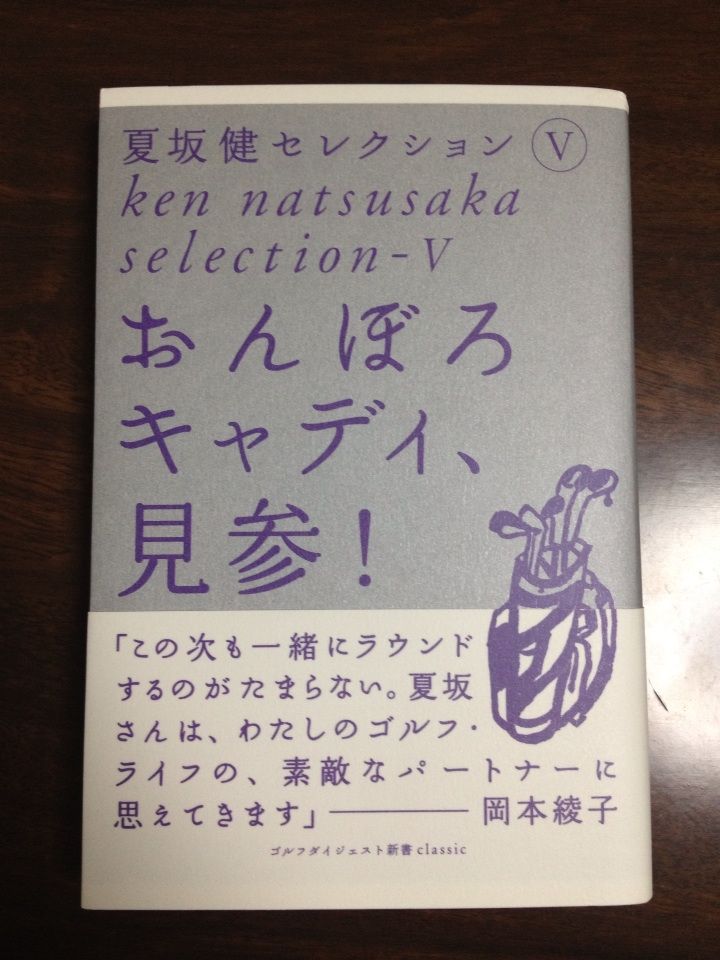 夏坂健セレクション Ⓥ
ken natsusaka
selection-V
おんぼろ
キャディ、
見参！
「この次も一緒にラウンド
するのがたまらない。夏坂
さんは、わたしのゴルフ・
ライフの、素敵なパートナーに
思えてきます」――― 岡本綾子
ゴルフダイジェスト新書classic